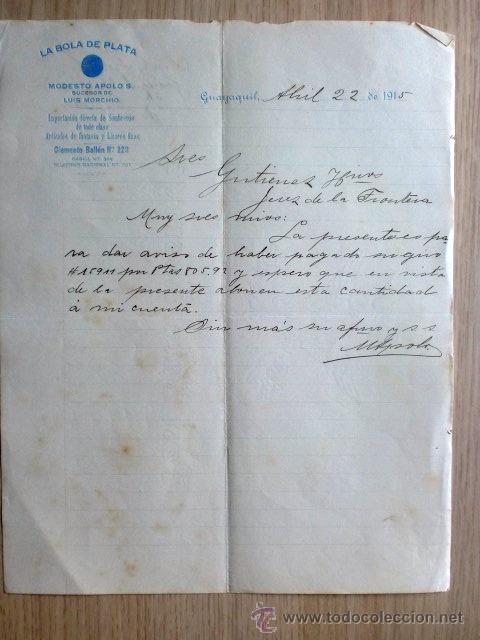 LA BOLA DE PLATA
MODESTO APOLO S.
SUCESOR DE
LUIS MORCHIO
Importación directa de Sombreros
de todo clase
Artículos de fantasía y Licores finos
Clemente Ballén Nº 223
Guayaquil, Abril 22 de 1915
Sres
Gutierrez Hnos
Jerez de la Frontera
Muy sres mios:
La presente es pa
ra dar aviso de haber pagado su giro
por Ptas 805.92 y espero que en vista
de la presente abonen esta cantidad
á mi cuenta.
Sin más su afmo y s s
MApolo
www.todocoleccion.net